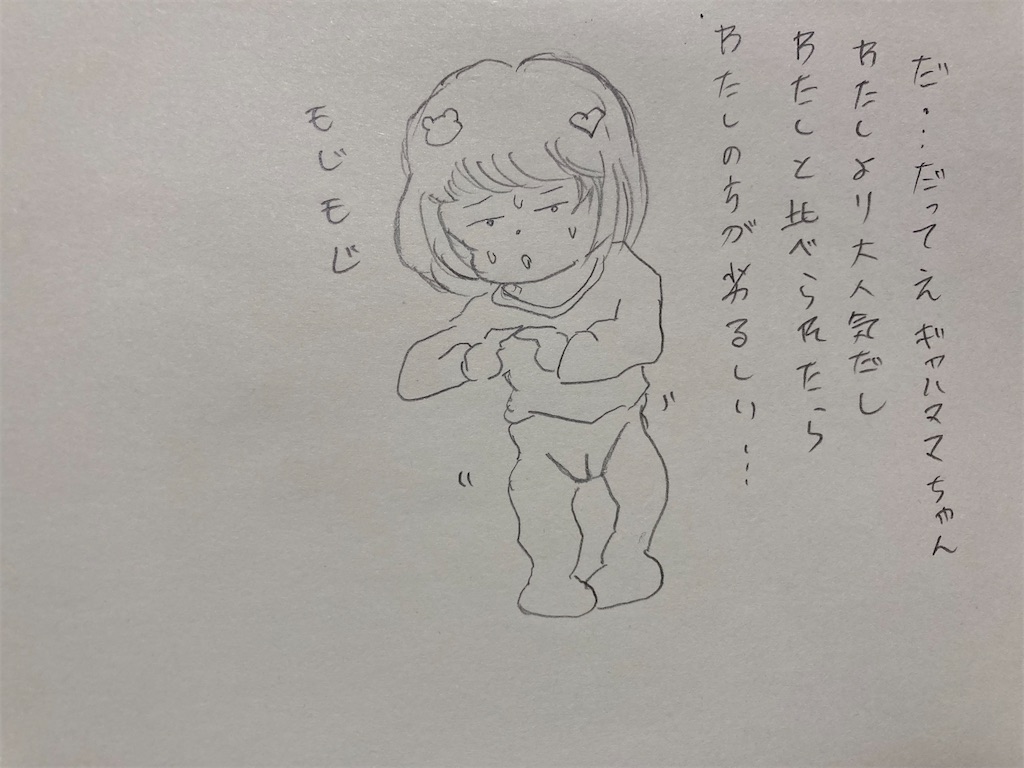 だ・・・だってえギャハママちゃん
わたしより大人気だし
わたしと比べられたら
わたしのちが劣るしい・・・
モじモじ